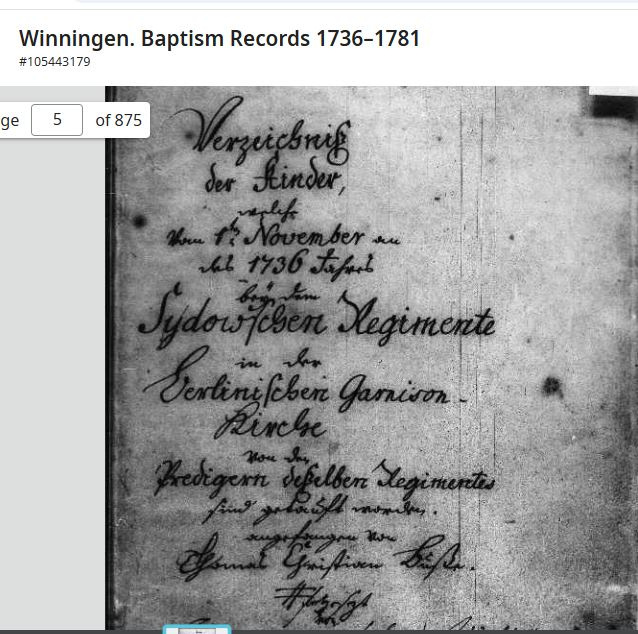 Winningen. Baptism Records 1736–1781
#105443179
ge 5 of 875
Verzeichniß
der Kinder,
welche
Vom 1t. November an
des 1736 Jahres
bey dem
Sydowschen Regimente
in der
Berlinischen Garnison-
Kirche
von den
Predigern deßelben Regimentes
sind getauft worden.
angefangen von
Thomas Christian Büße.